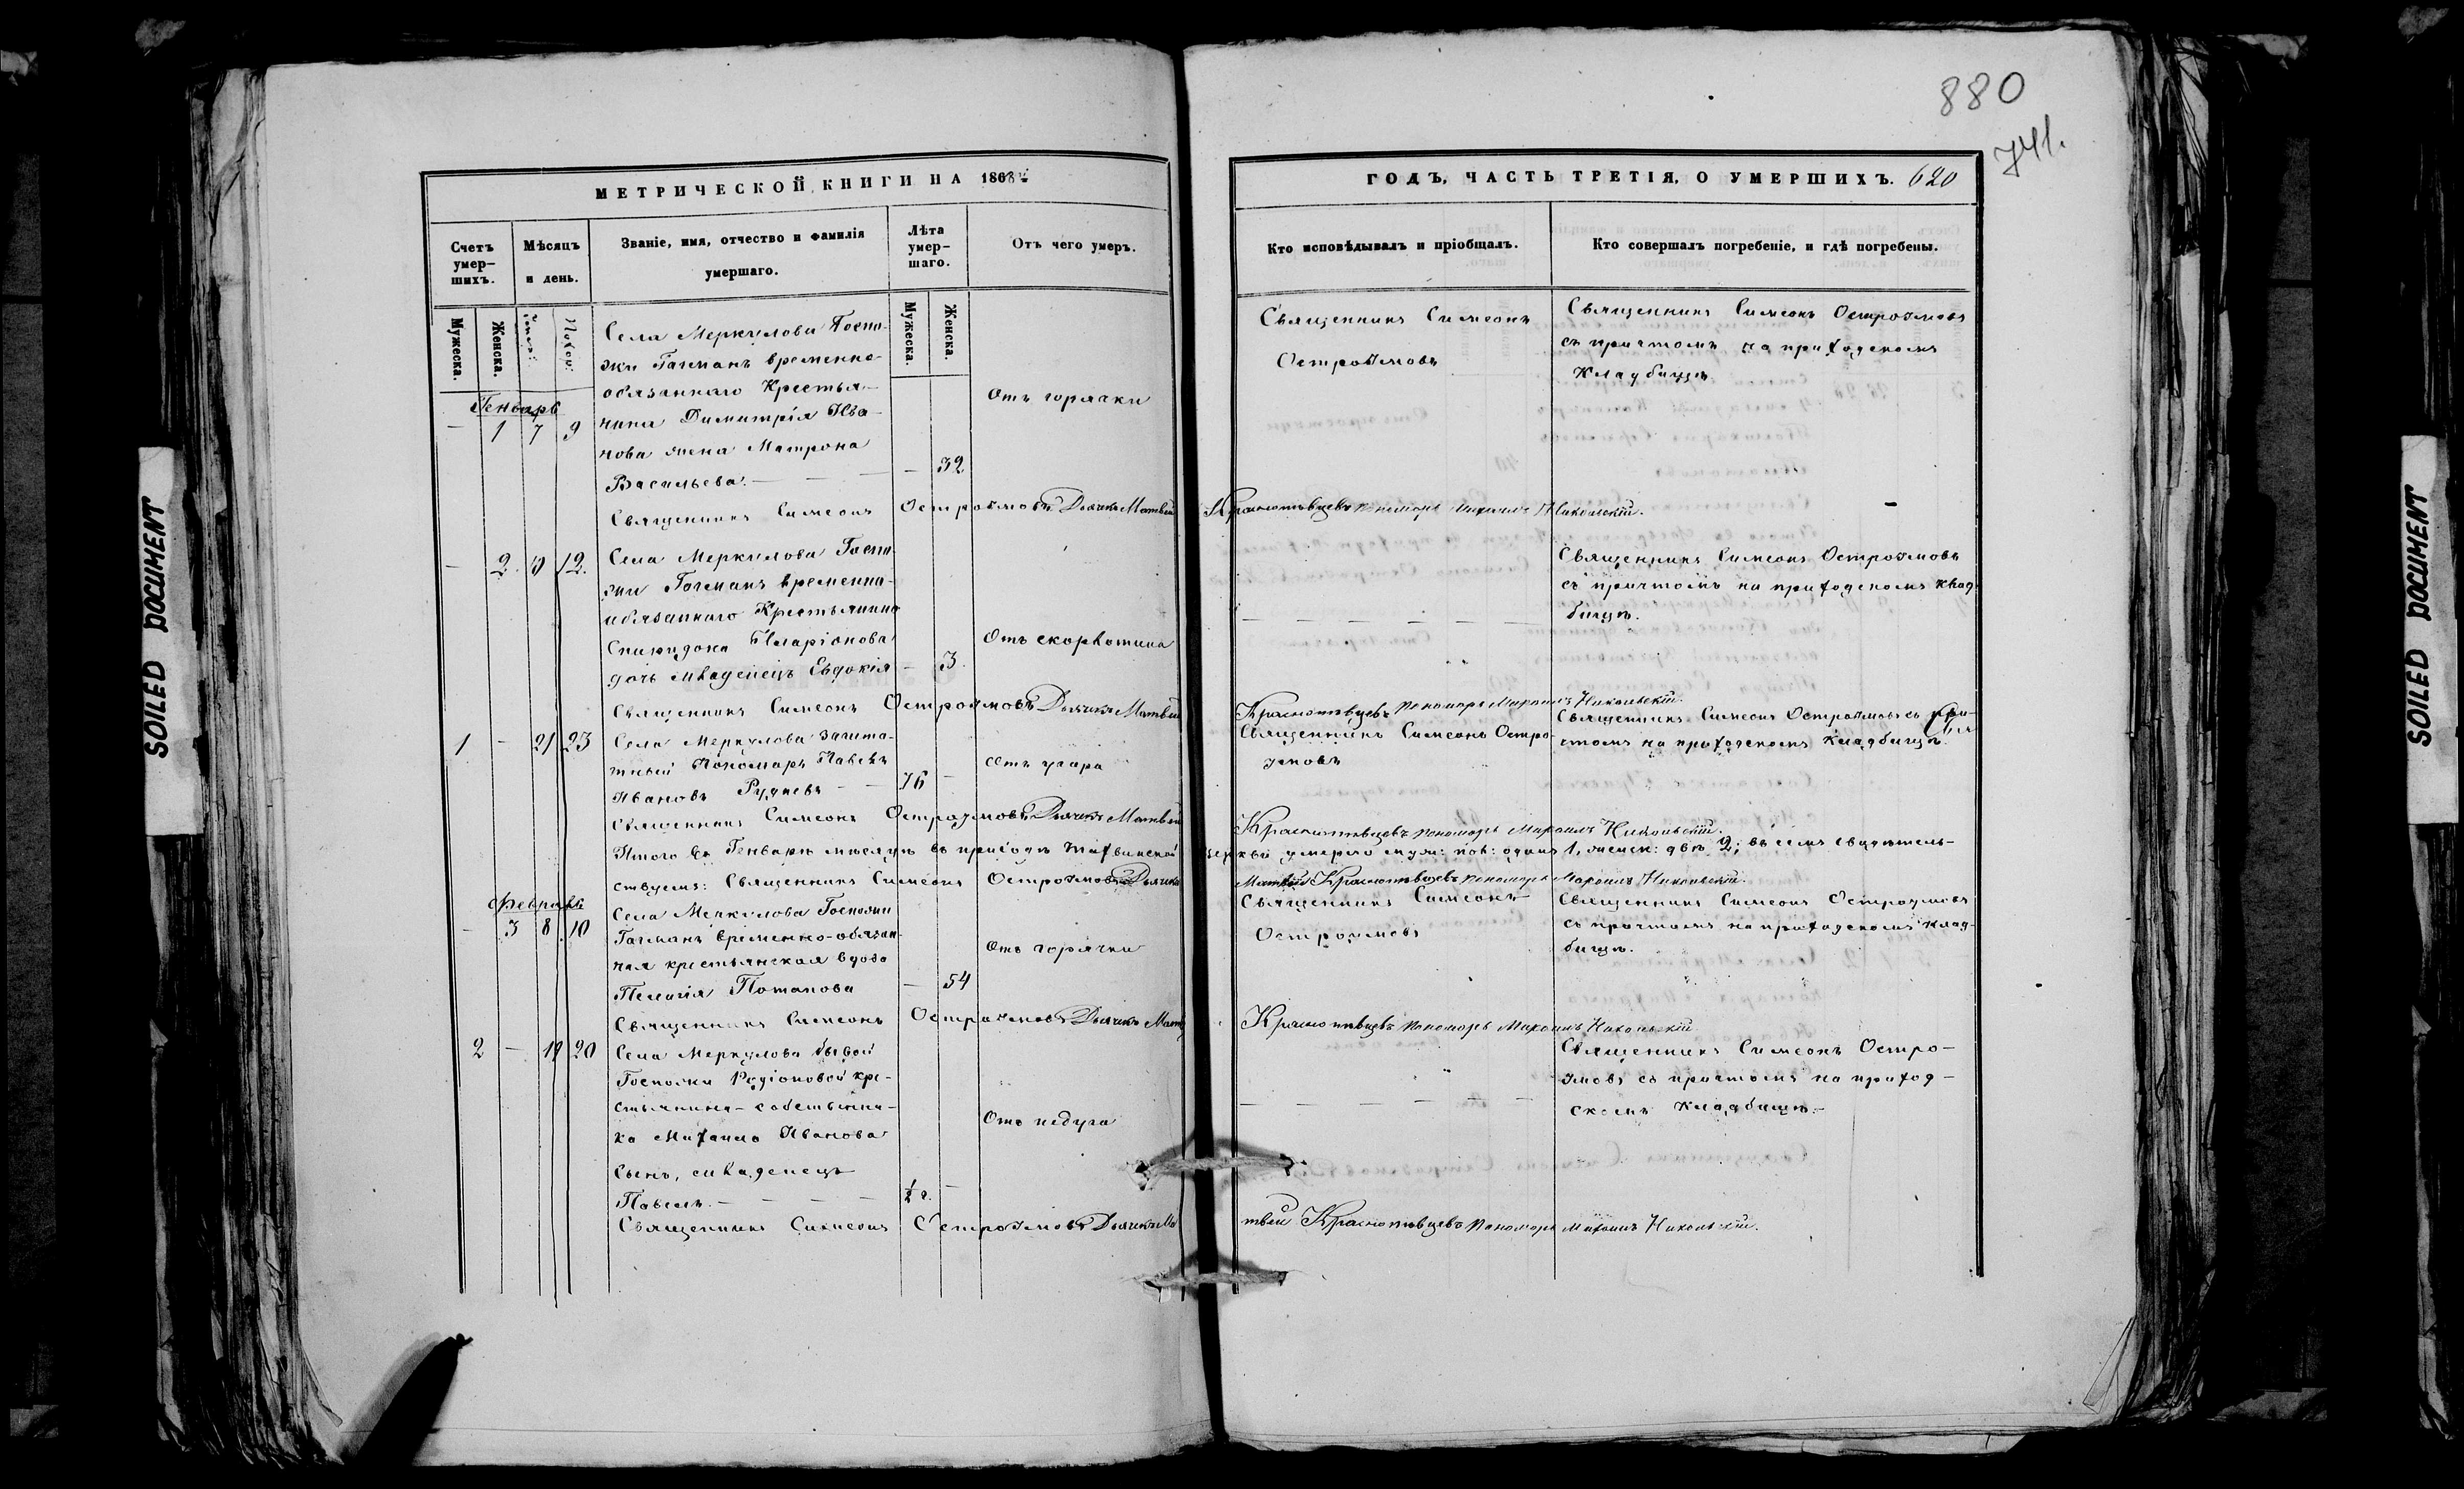 880
741.
МЕТРИЧЕСКОЙ КНИГИ НА 186
ГОДЪ, ЧАСТЬ ТРЕТІЯ, О УМЕРШИХЪ. 620
Счетъ умер-шихъ.
Мѣсяцъ и день.
Званіе, имя, отчество и фамилія умершаго.
Лѣта умер-шаго.
Отъ чего умеръ.
Кто исповѣдывалъ и пріобщалъ.
Кто совершалъ погребеніе, и гдѣ погребены.
Мужеска.
Женска.
Мужеска.
Женска.
Генварь
— 1 7 9
Села Меркулова Госпо-
жи Гагманъ временно-
обязаннаго Крестья-
нина Димитрія Ива-
нова жена Матрона
Васильева. —
— 32
Отъ горячки
Священникъ Симеонъ
Остроумовъ
Священникъ Симеонъ Остроумовъ
съ причтомъ на приходскомъ
Кладбищѣ
Священникъ Симеонъ Остроумовъ Дьячекъ Матвѣй Краснопѣвцевъ пономарь Михаилъ Никольскій.
— 2. 10 12.
Села Меркулова Госпо-
жи Гагманъ временно-
обязаннаго Крестьянина
Спиридона Иларіонова
дочь младенецъ Евдокія
— 3.
Отъ скорботина
— — — — — —
Священникъ Симеонъ Остроумовъ
съ причтомъ на приходскомъ клад-
бищѣ.
Священникъ Симеонъ Остроумовъ Дьячекъ Матвѣй Краснопѣвцевъ пономарь Михаилъ Никольскій.
1 — 21 23
Села Меркулова зашта-
тный Пономарь Павелъ
Ивановъ Рудневъ — —
76 —
Отъ угара
Священникъ Симеонъ Остро-
умовъ
Священникъ Симеонъ Остроумовъ съ при-
чтомъ на приходскомъ кладбищѣ.
Священникъ Симеонъ Остроумовъ Дьячекъ Матвѣй Краснопѣвцевъ пономарь Михаилъ Никольскій.
Итого въ Генварѣ мѣсяцѣ въ приходѣ Тихвинской церкви умерло муж: пол: одинъ 1, женск: двѣ 2; въ семъ свидѣтель-
ствуемъ: Священникъ Симеонъ Остроумовъ Дьячекъ Матвѣй Краснопѣвцевъ пономарь Михаилъ Никольскій.
Февраль
— 3 8 10
Села Меркулова Госпожи
Гагманъ временно-обязан-
ная крестьянская вдова
Пелагія Потапова
— 54
Отъ горячки
Священникъ Симеонъ
Остроумовъ
Священникъ Симеонъ Остроумовъ
съ причтомъ на приходскомъ клад-
бищѣ.
Священникъ Симеонъ Остроумовъ Дьячекъ Матвѣй Краснопѣвцевъ пономарь Михаилъ Никольскій
2 — 19 20
Села Меркулова бывой
Госпожи Родіоновой кре-
стьянина-собственни-
ка Михаила Иванова
сынъ, младенецъ
Павелъ. — — — —
½ г. —
Отъ недуга
— — — — — —
Священникъ Симеонъ Остро-
умовъ съ причтомъ на приход-
скомъ кладбищѣ. —
Священникъ Симеонъ Остроумовъ Дьячекъ Матвѣй Краснопѣвцевъ пономарь Михаилъ Никольскій.
SOILED DOCUMENT
SOILED DOCUMENT